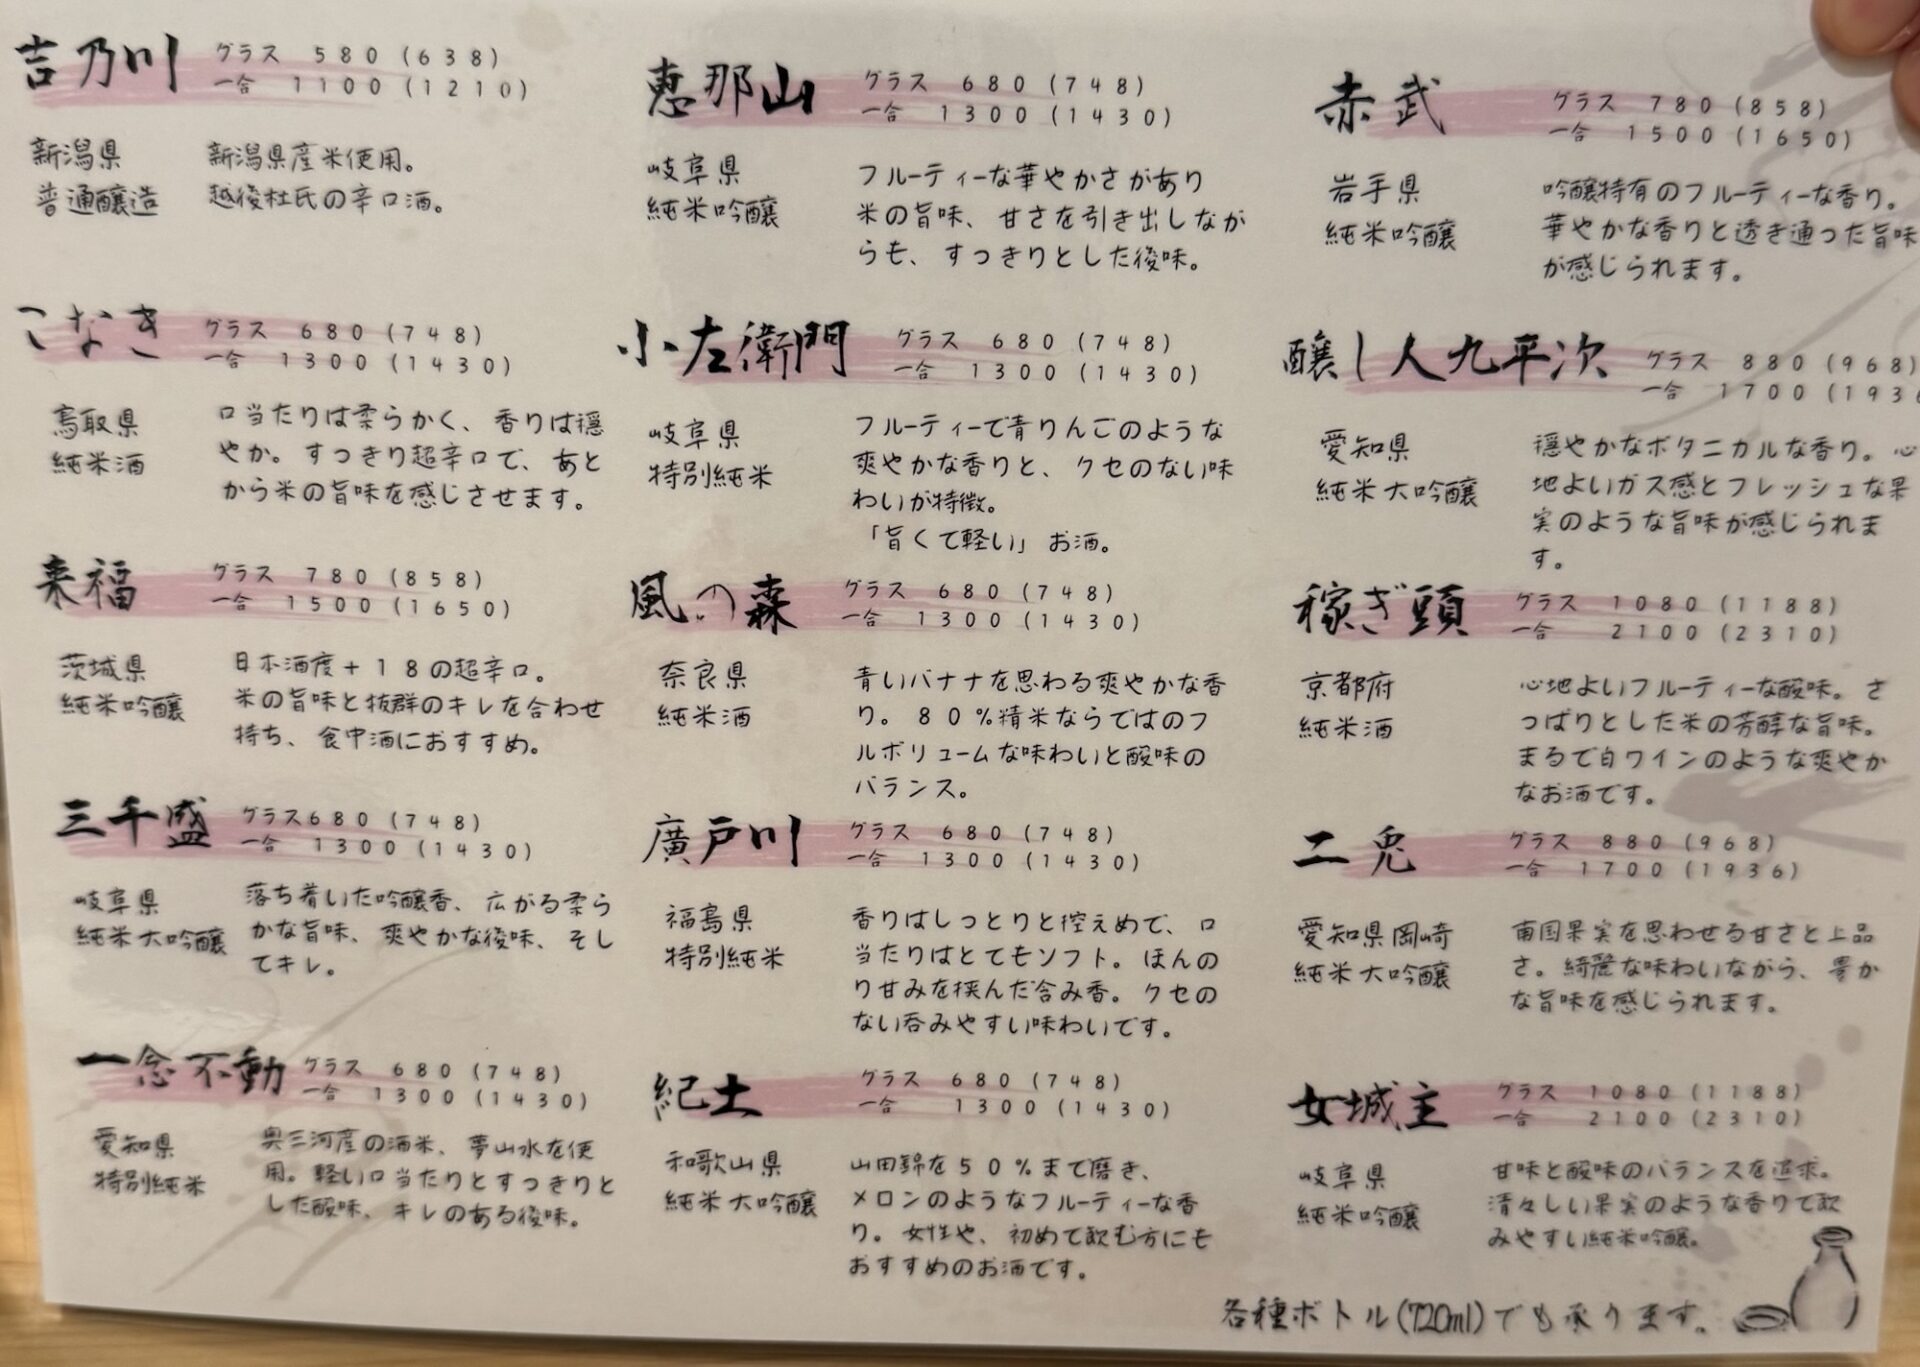 吉乃川 グラス 580(638)
一合 1100(1210)
新潟県
普通醸造
新潟県産米使用。
越後杜氏の辛口酒。
こなき グラス 680(748)
一合 1300(1430)
鳥取県
純米酒
口当たりは柔らかく、香りは穏
やか。すっきり超辛口で、あと
から米の旨味を感じさせます。
来福 グラス 780(858)
一合 1500(1650)
茨城県
純米吟醸
日本酒度+18の超辛口。
米の旨味と抜群のキレを合わせ
持ち、食中酒におすすめ。
三千盛 グラス680(748)
一合 1300(1430)
岐阜県
純米大吟醸
落ち着いた吟醸香、広がる柔ら
かな旨味、爽やかな後味、そし
てキレ。
一念不動 グラス 680(748)
一合 1300(1430)
愛知県
特別純米
奥三河産の酒米、夢山水を使
用。軽い口当たりとすっきりと
した酸味、キレのある後味。
恵那山 グラス 680(748)
一合 1300(1430)
岐阜県
純米吟醸
フルーティーな華やかさがあり
米の旨味、甘さを引き出しなが
らも、すっきりとした後味。
小左衛門 グラス 680(748)
一合 1300(1430)
岐阜県
特別純米
フルーティーで青りんごのような
爽やかな香りと、クセのない味
わいが特徴。
「旨くて軽い」お酒。
風の森 グラス 680(748)
一合 1300(1430)
奈良県
純米酒
青いバナナを思わる爽やかな香
り。80%精米ならではのフ
ルボリュームな味わいと酸味の
バランス。
廣戸川 グラス 680(748)
一合 1300(1430)
福島県
特別純米
香りはしっとりと控えめで、口
当たりはとてもソフト。ほんの
り甘みを挟んだ含み香。クセの
ない呑みやすい味わいです。
紀土 グラス 680(748)
一合 1300(1430)
和歌山県
純米大吟醸
山田錦を50%まで磨き、
メロンのようなフルーティーな香
り。女性や、初めて飲む方にも
おすすめのお酒です。
赤武 グラス 780(858)
一合 1500(1650)
岩手県
純米吟醸
吟醸特有のフルーティーな香り。
華やかな香りと透き通った旨味
が感じられます。
醸し人九平次 グラス 880(968)
一合 1700(1936
愛知県
純米大吟醸
穏やかなボタニカルな香り。心
地よいガス感とフレッシュな果
実のような旨味が感じられま
す。
稼ぎ頭 グラス 1080(1188)
一合 2100(2310)
京都府
純米酒
心地よいフルーティーな酸味。さ
っぱりとした米の芳醇な旨味。
まるで白ワインのような爽やか
なお酒です。
二兎 グラス 880(968)
一合 1700(1936)
愛知県岡崎
純米大吟醸
南国果実を思わせる甘さと上品
さ。綺麗な味わいながら、豊か
な旨味を感じられます。
女城主 グラス 1080(1188)
一合 2100(2310)
岐阜県
純米吟醸
甘味と酸味のバランスを追求。
清々しい果実のような香りで飲
みやすい純米吟醸。
各種ボトル(720ml)でも承ります。